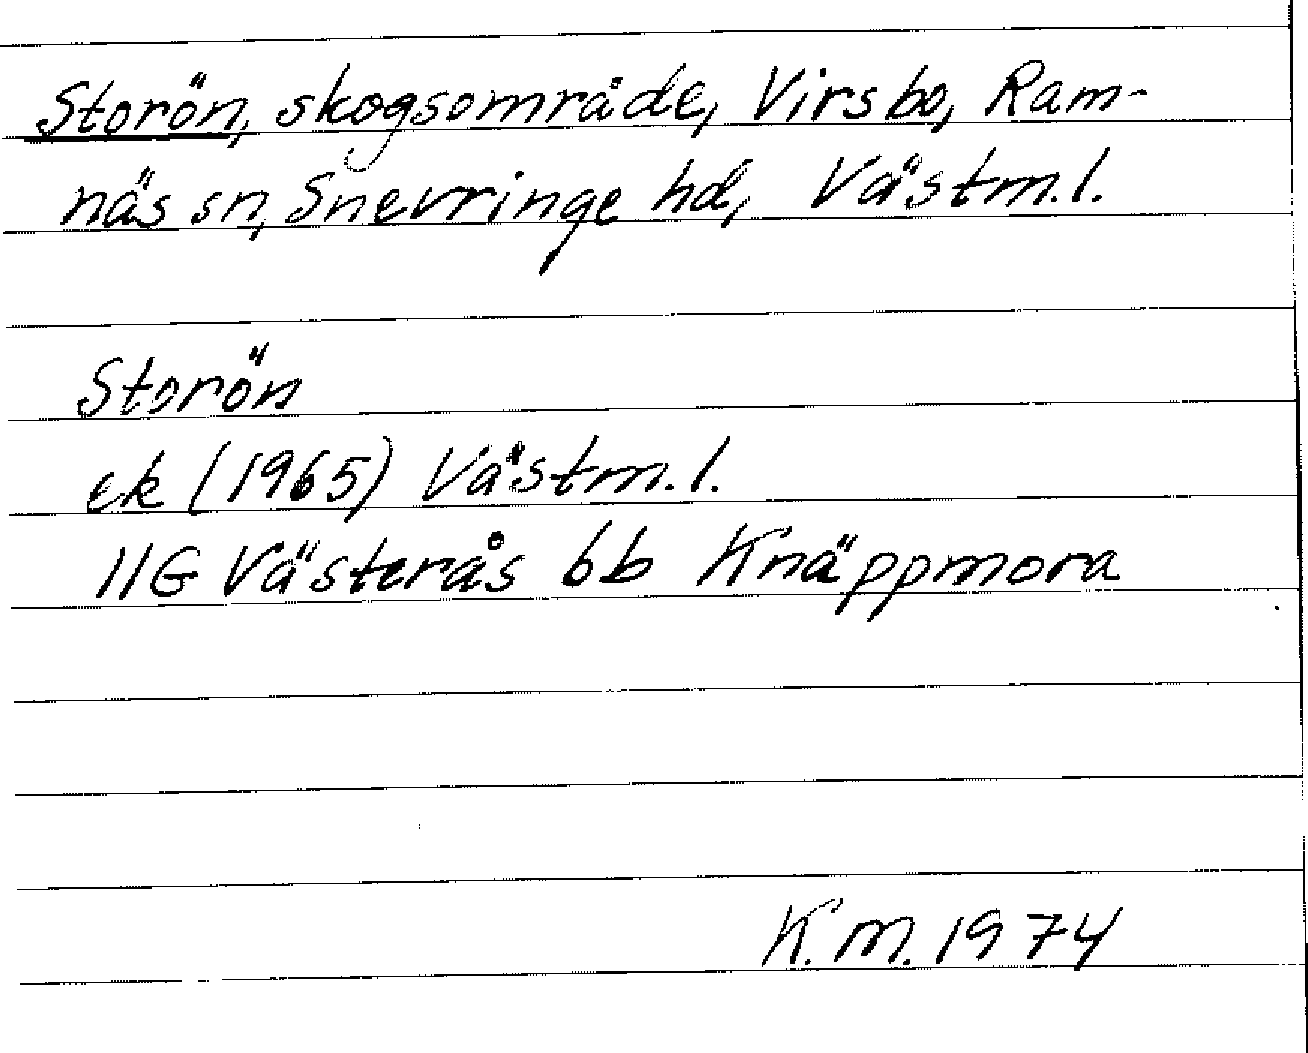 Storön, skogsområde, Virsbo, Ram-
näs sn, Snevringe hd, Västm. l.
Storön
ek (1965) Västm. l.
11G Västerås 6b Knäppmora
K. M. 1974